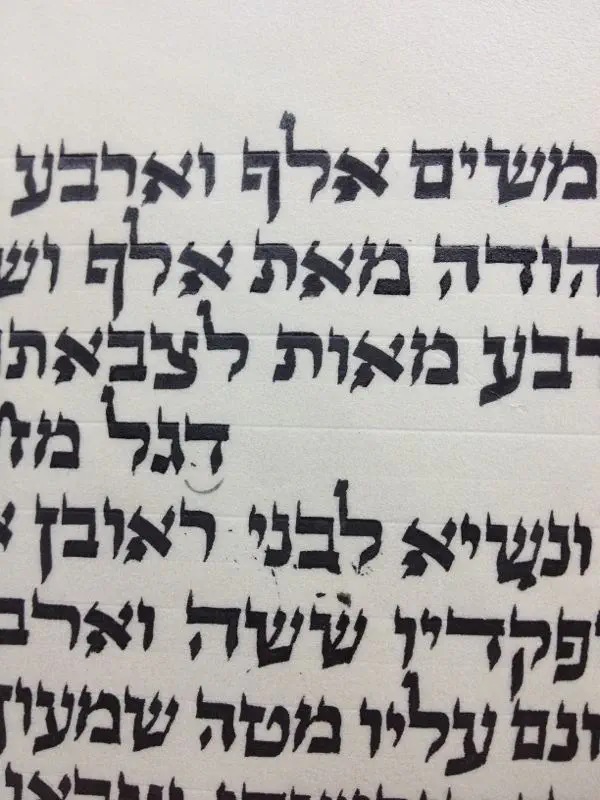 משים אלף וארבע
הודה מאת אלף וש
רבע מאות לצבאת
דגל מח
ונשיא לבני ראובן
פקדיו ששה וארב
ונם עליו מטה שמעון